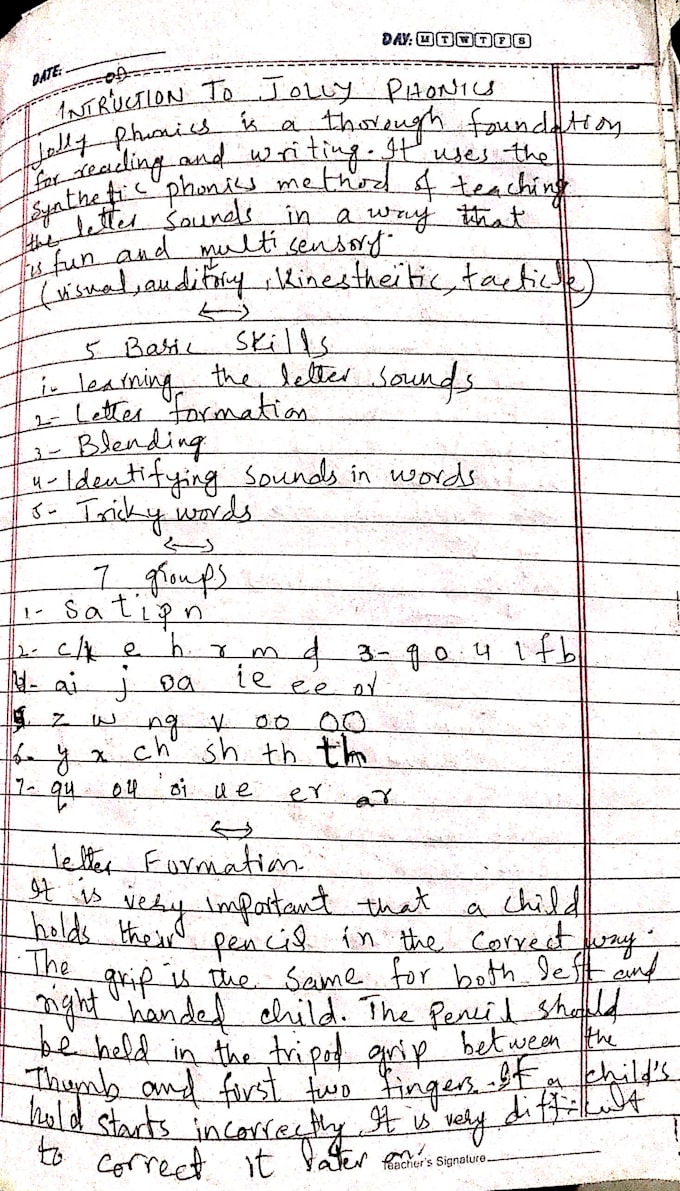 DAY: M T W T F S
DATE:
INTRUCTION TO JOLLY PHONICS
od
Jolly phonics is a thorough foundation
for reading and writing. It uses the
synthetic phonics method of teaching
the letter sounds in a way that
is fun and multi sensory.
(visual, auditory, Kinestheitic, tacticle)
5 Basic Skills
1- learning the letter sounds
2- Letter formation
3- Blending
4- Identifying sounds in words
5- Tricky words
7 groups
1- s a t i p n
2- c/k e h r m d 3- g o u l f b
4- ai j oa ie ee or
5 z w ng v oo OO
6- y x ch sh th th
7- qu ou oi ue er ar
letter Formation
It is very important that a child
holds their pencil in the correct way.
The grip is the same for both left and
right handed child. The Pencil should
be held in the tripod grip between the
Thumb and first two fingers. If a child's
hold starts incorrectly, It is very difficult
to correct it later on.
Teacher's Signature